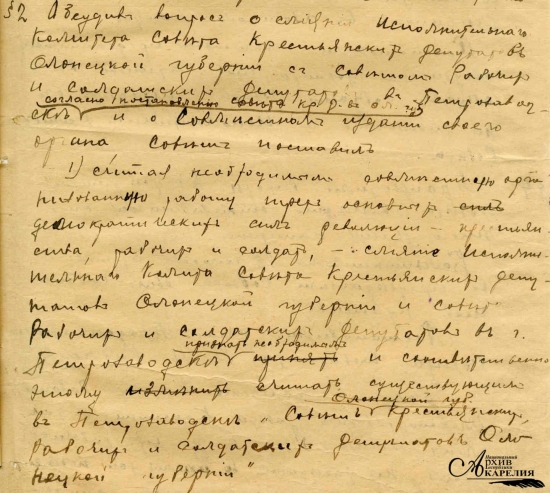 §2 Обсудив вопрос о слиянии Исполнительнаго
Комитета Совѣта Крестьянских Депутатовъ
Олонецкой губернiи съ Совѣтомъ Рабочих
и Солдатских Депутатовъ въ Петрозавод-
согласно постановленiю совѣта кр. д. в Ол. губ.
скѣ и о совмѣстномъ изданiи своего
органа Совѣтъ поставилъ
1) считая необходимым совмѣстную орга
низованную работу трех основных силъ
демократических силъ революцiи - крестьян-
ства, рабочих и солдат, - слиянiе Исполни-
тельнаго Комитета Совѣта Крестьянских депу-
татовъ Олонецкой губернiи и совѣта
Рабочих и солдатских депутатов въ г.
признать необходимым
Петрозаводскѣ принять и соотвѣтственно
этому считать существующим
Олонецкой губ.
въ Петрозаводскѣ "Совѣтъ Крестьянских,
Рабочих и Солдатских депутатовъ Оло
нецкой губернiи"
Национальный
АРХИВ
Республики
КАРЕЛИЯ